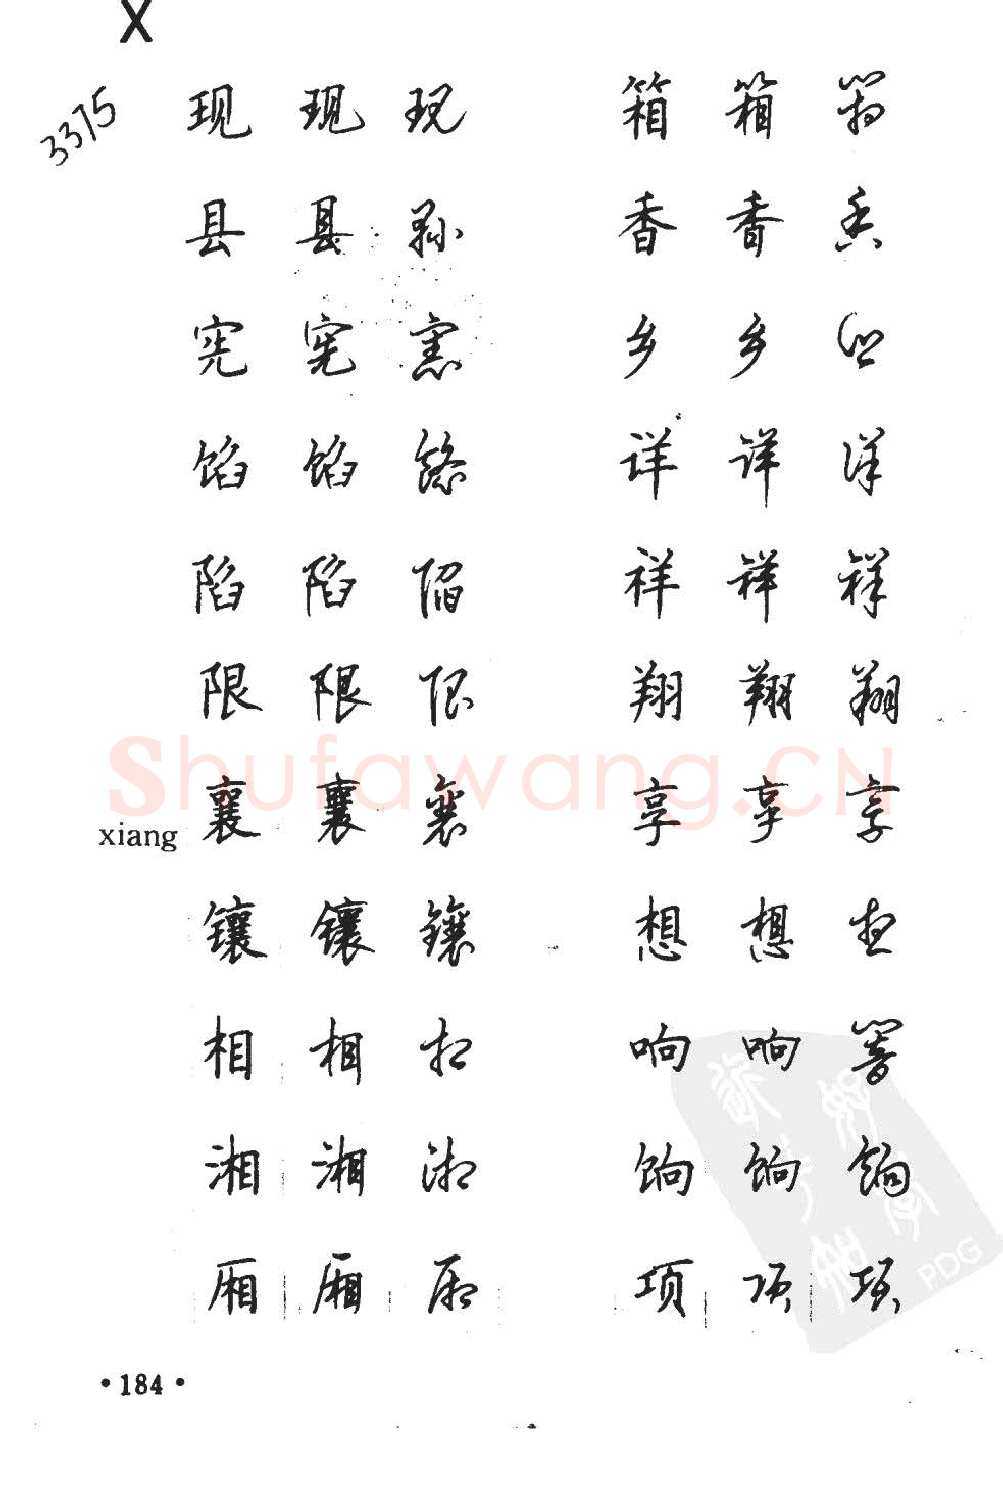 X
3375
现 现 现 箱 箱 箱
县 县 縣 香 香 香
宪 宪 憲 乡 乡 乡
馅 馅 馅 详 详 详
陷 陷 陷 祥 祥 祥
限 限 限 翔 翔 翔
xiang 襄 襄 襄 享 享 享
镶 镶 鑲 想 想 想
相 相 相 响 响 響
湘 湘 湘 饷 饷 餉
厢 厢 厢 项 项 项
·184·
Shufawang.CN
PDG